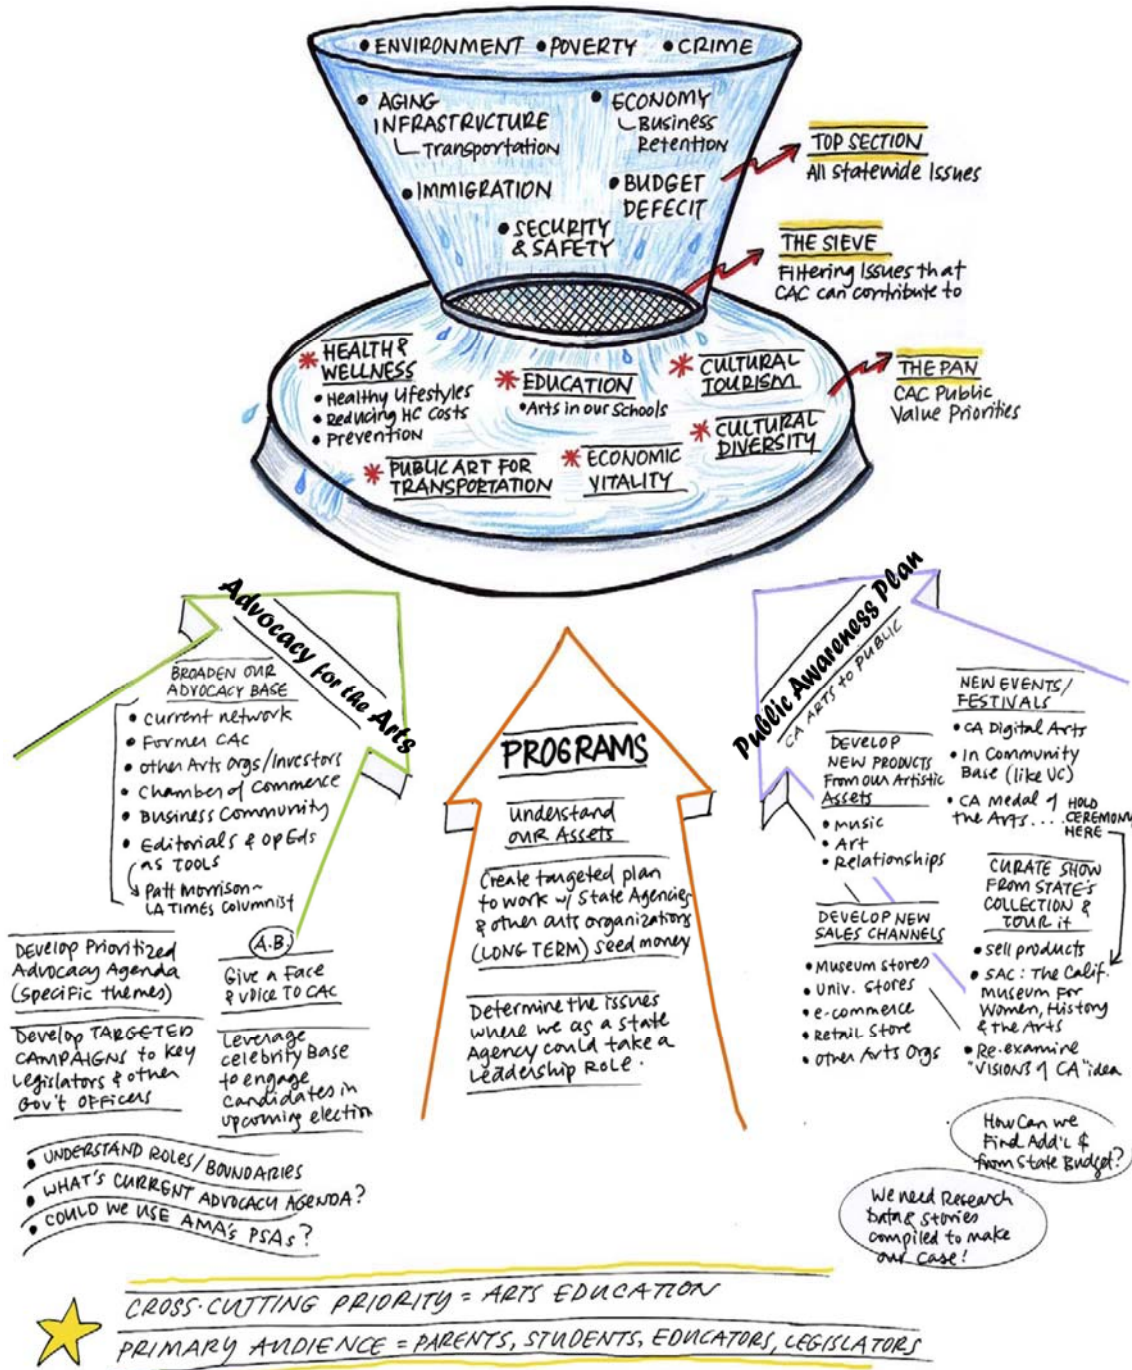 • ENVIRONMENT • POVERTY • CRIME
• AGING
INFRASTRUCTURE
Transportation
• ECONOMY
Business
Retention
• IMMIGRATION
• BUDGET
DEFECIT
• SECURITY
& SAFETY
TOP SECTION
All Statewide Issues
THE SIEVE
Filtering Issues that
CAC can contribute to
THE PAN
CAC Public
Value Priorities
* HEALTH &
WELLNESS
• Healthy Lifestyles
• Reducing HC Costs
• Prevention
* EDUCATION
• Arts in our Schools
* CULTURAL
TOURISM
* CULTURAL
DIVERSITY
* PUBLIC ART FOR
TRANSPORTATION
* ECONOMIC
VITALITY
Advocacy for the Arts
BROADEN OUR
ADVOCACY BASE
• Current network
• Former CAC
• Other Arts Orgs/Investors
• Chamber of Commerce
• Business Community
• Editorials & Op Eds
as TOOLS
Patt Morrison~
LA TIMES columnist
Develop Prioritized
Advocacy Agenda
(Specific themes)
Develop TARGETED
CAMPAIGNS to key
Legislators & other
Gov't Officers
A.B.
Give a Face
& Voice TO CAC
Leverage
celebrity Base
to engage
candidates in
upcoming election
• UNDERSTAND ROLES/BOUNDARIES
• WHAT'S CURRENT ADVOCACY AGENDA?
• COULD WE USE AMA's PSAs?
PROGRAMS
Understand
our Assets
Create targeted plan
to work w/ State Agencies
& other arts organizations
(LONG TERM) seed money
Determine the issues
where we as a state
Agency could take a
Leadership Role.
Public Awareness Plan
CA ARTS to PUBLIC
DEVELOP
NEW PRODUCTS
From our Artistic
Assets
• Music
• Art
• Relationships
DEVELOP NEW
SALES CHANNELS
• Museum Stores
• Univ. Stores
• e-commerce
• Retail Store
• Other Arts Orgs
NEW EVENTS/
FESTIVALS
• CA Digital Arts
• In Community
Base (like UC)
• CA Medal of
the Arts....
HOLD
CEREMONY
HERE
CURATE SHOW
FROM STATE'S
COLLECTION &
TOUR it
• sell products
• SAC: The Calif.
Museum For
Women, History
& the Arts
• Re-examine
"VISIONS of CA" idea
How Can we
Find Add'l $
from State Budget?
We need Research
Data & Stories
compiled to make
our case!
CROSS-CUTTING PRIORITY = ARTS EDUCATION
PRIMARY AUDIENCE = PARENTS, STUDENTS, EDUCATORS, LEGISLATORS